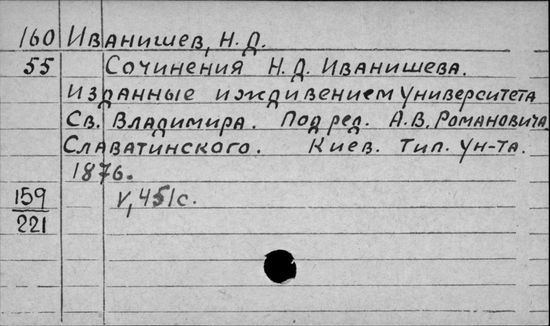 160 Иванишев, Н. Д.
55 Сочинения Н. Д. Иванишева.
Изданные иждивением Университета
Св. Владимира. Под ред. А. В. Романовича
Славатинского. Киев. Тип. Ун-та.
1876.
159 V, 451 с.
221